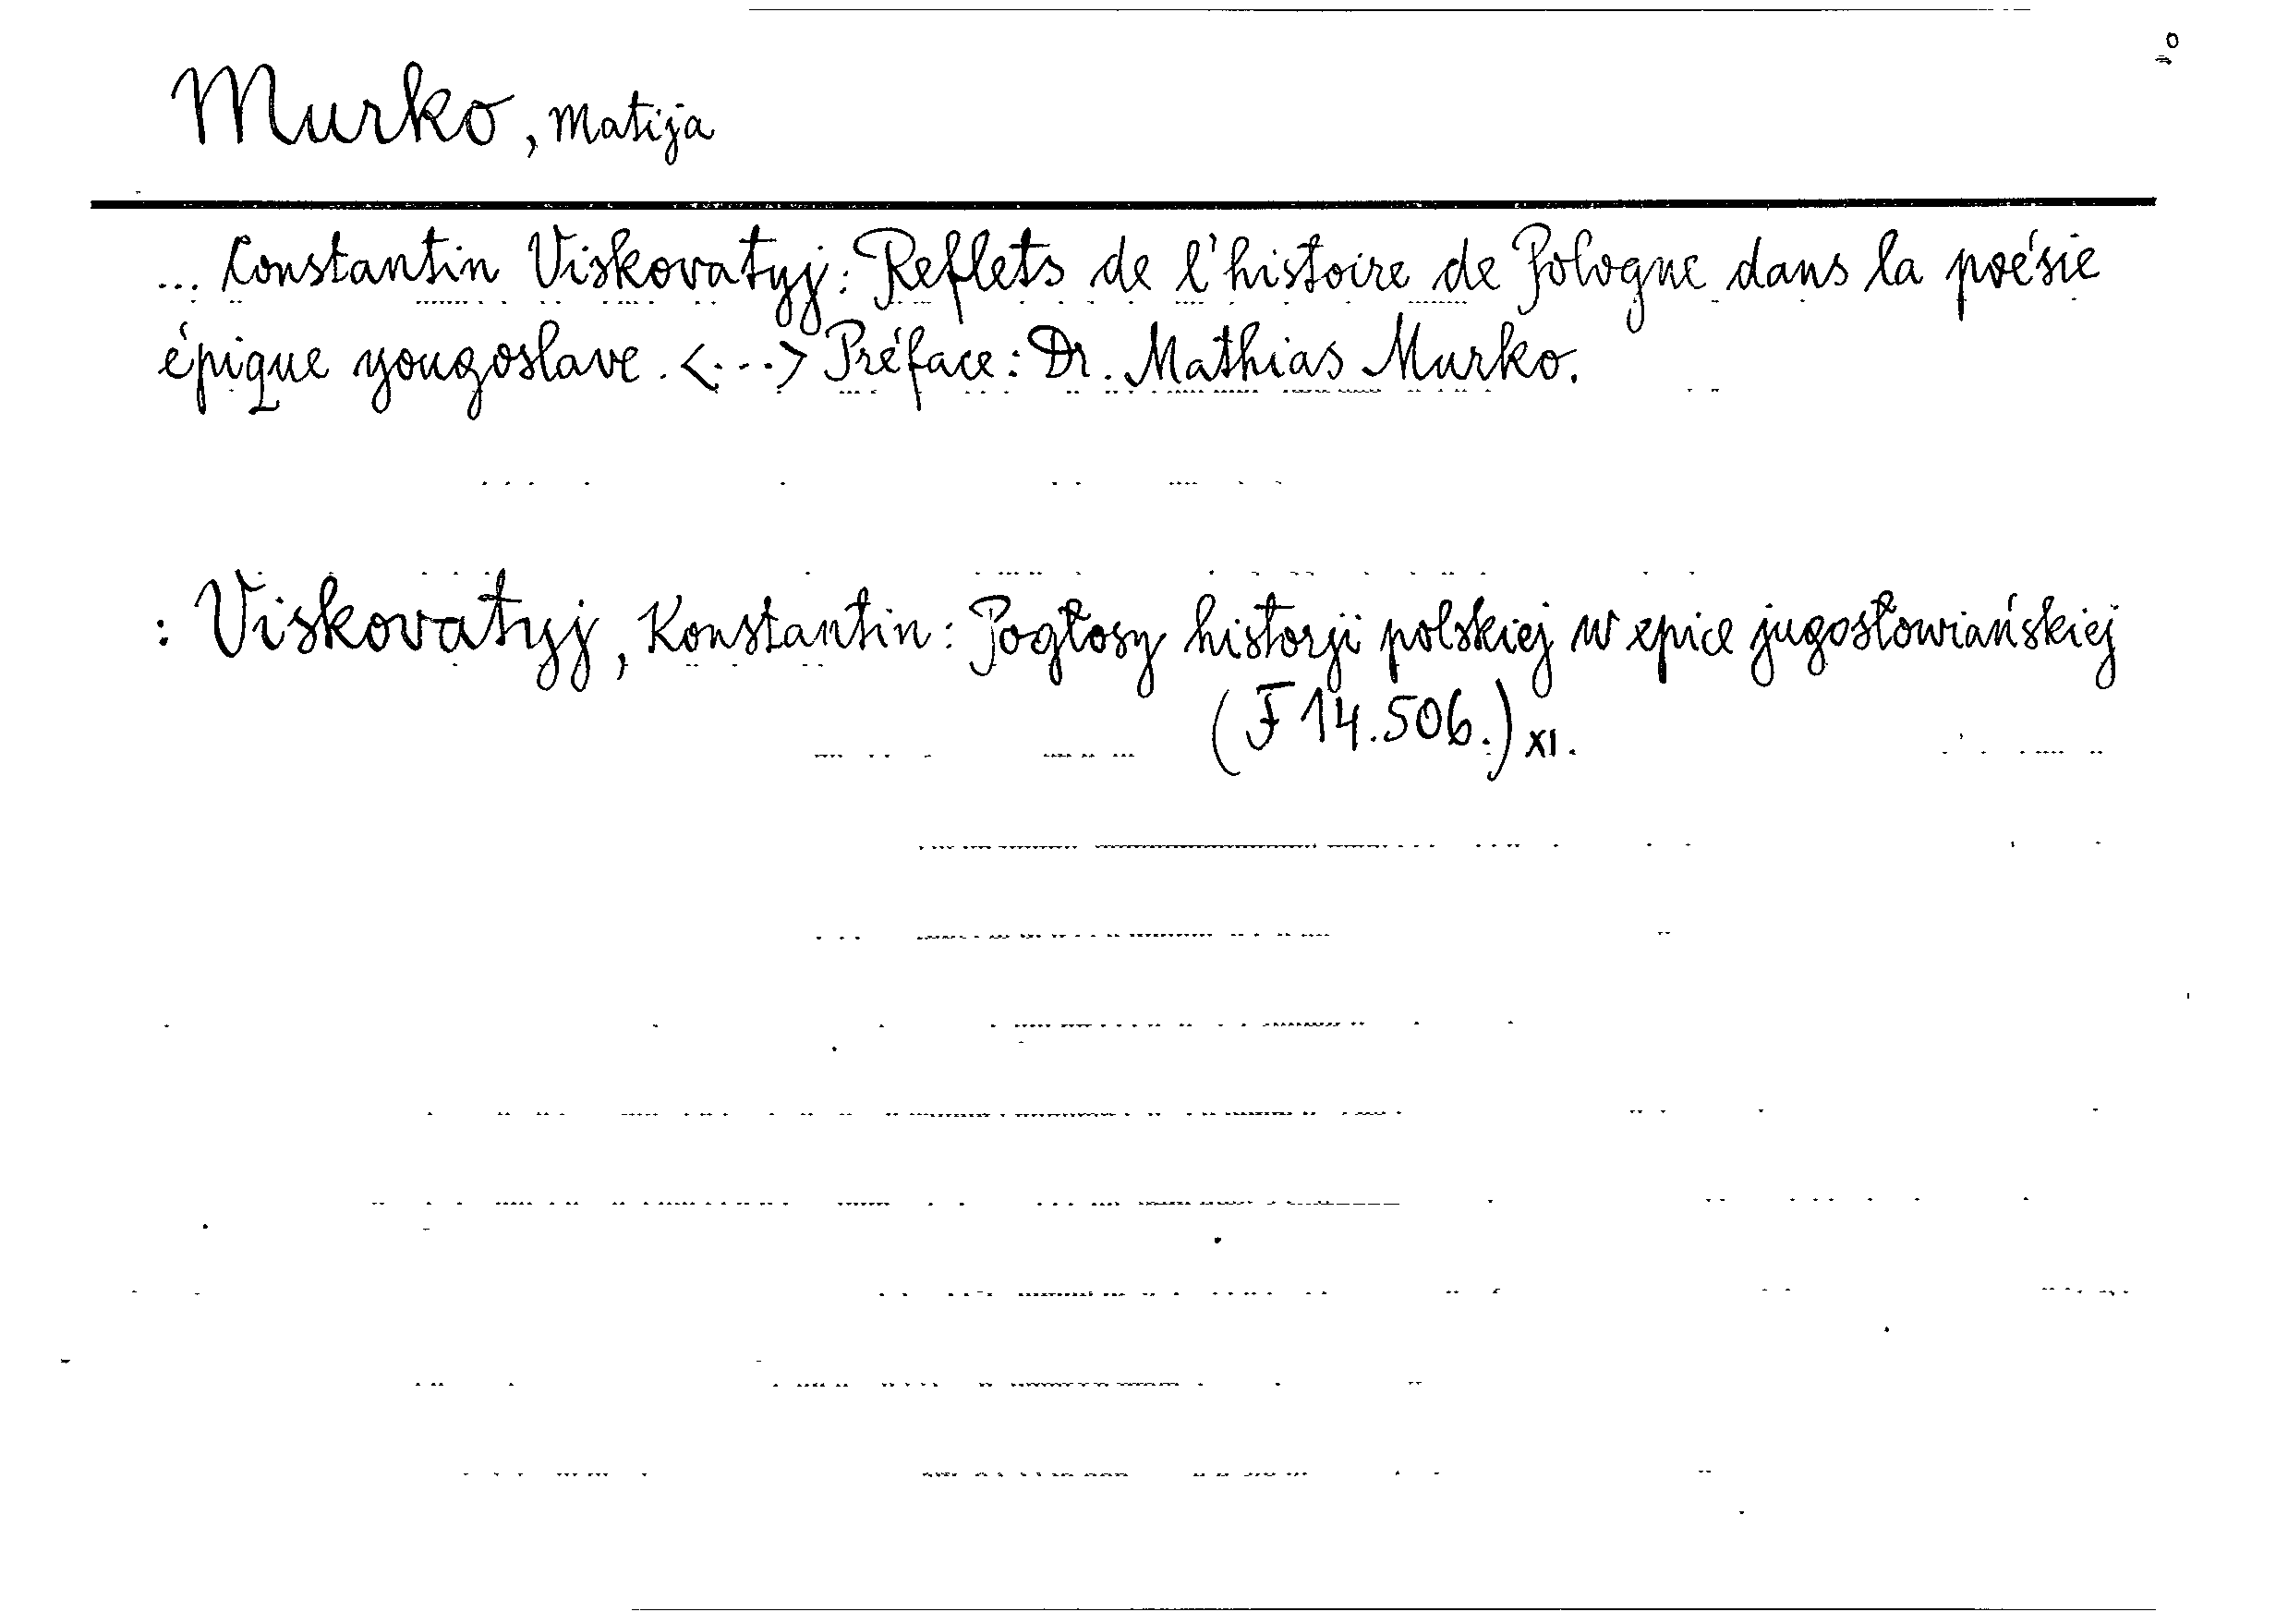 Murko, Matija
... Constantin Viskovatyj: Reflets de l'histoire de Pologne dans la poésie
épique yougoslave. <...> Préface: Dr. Mathias Murko.
: Viskovatyj, Konstantin: Pogłosy historji polskiej w epice jugosłowiańskiej
(F 14.506.) XI.